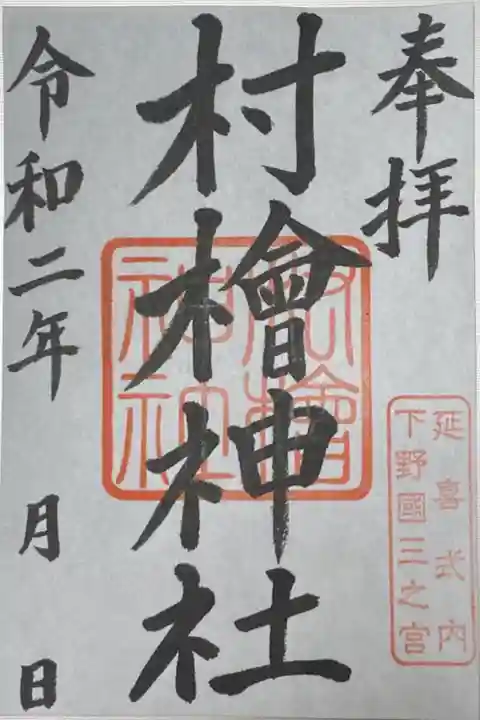 奉拝
延喜式内
下野國三之宮
村檜神社
村檜
神社
令和二年 月 日